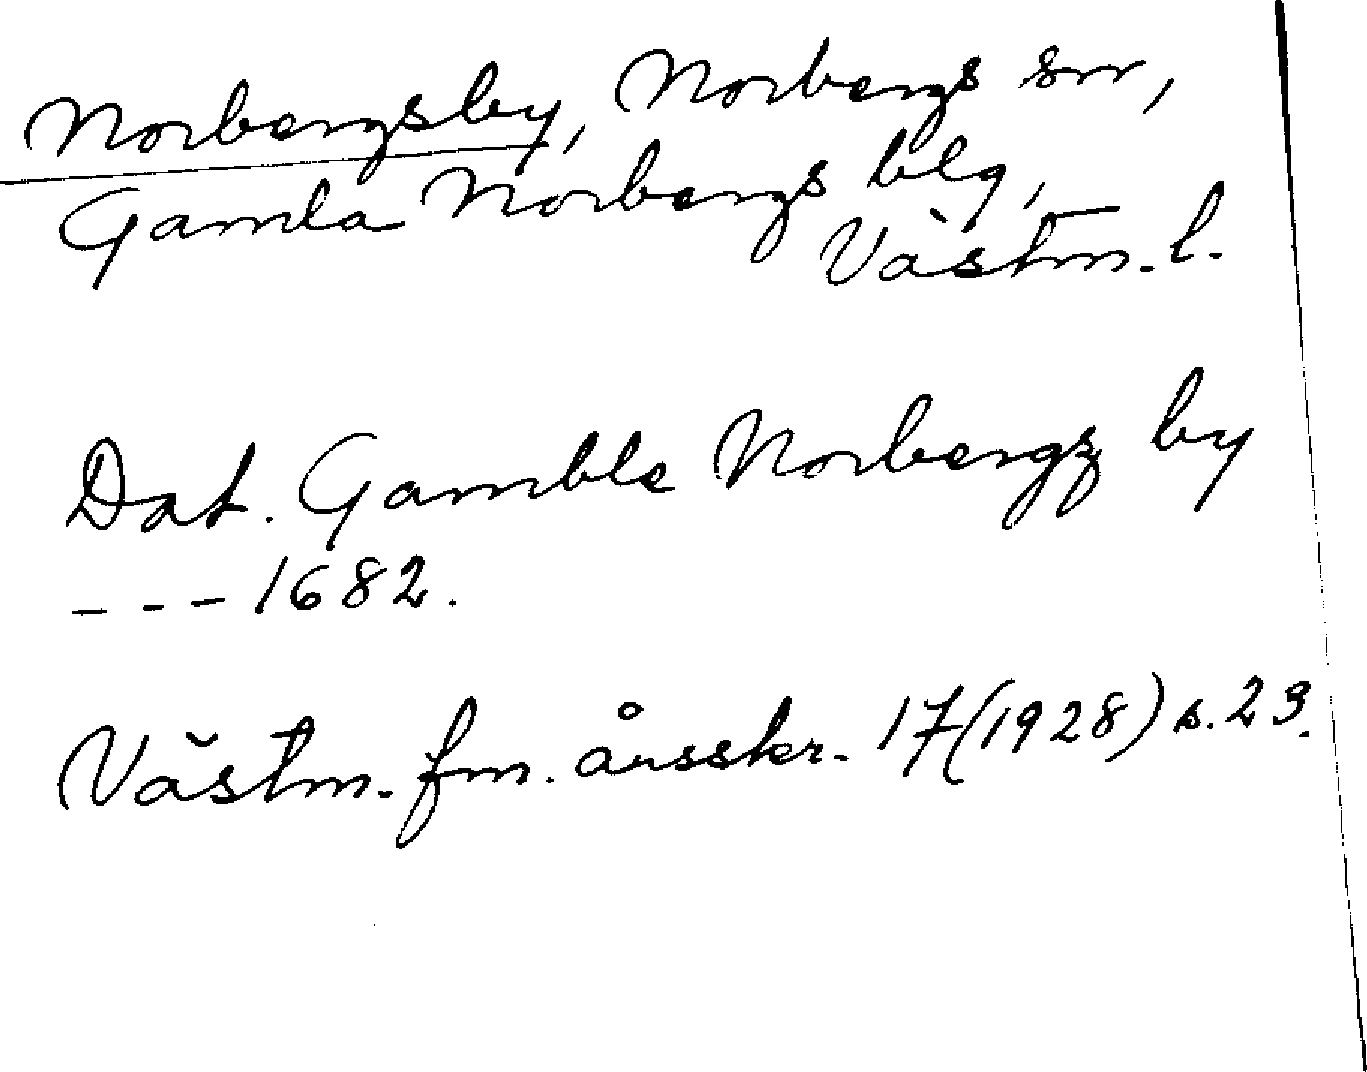 Norbergsby, Norbergs sn,
Gamla Norbergs blg,
Västm. l.
Dat. Gamble Norbergz by
--- 1682.
Västm. fm. årsskr. 17(1928) s. 23.